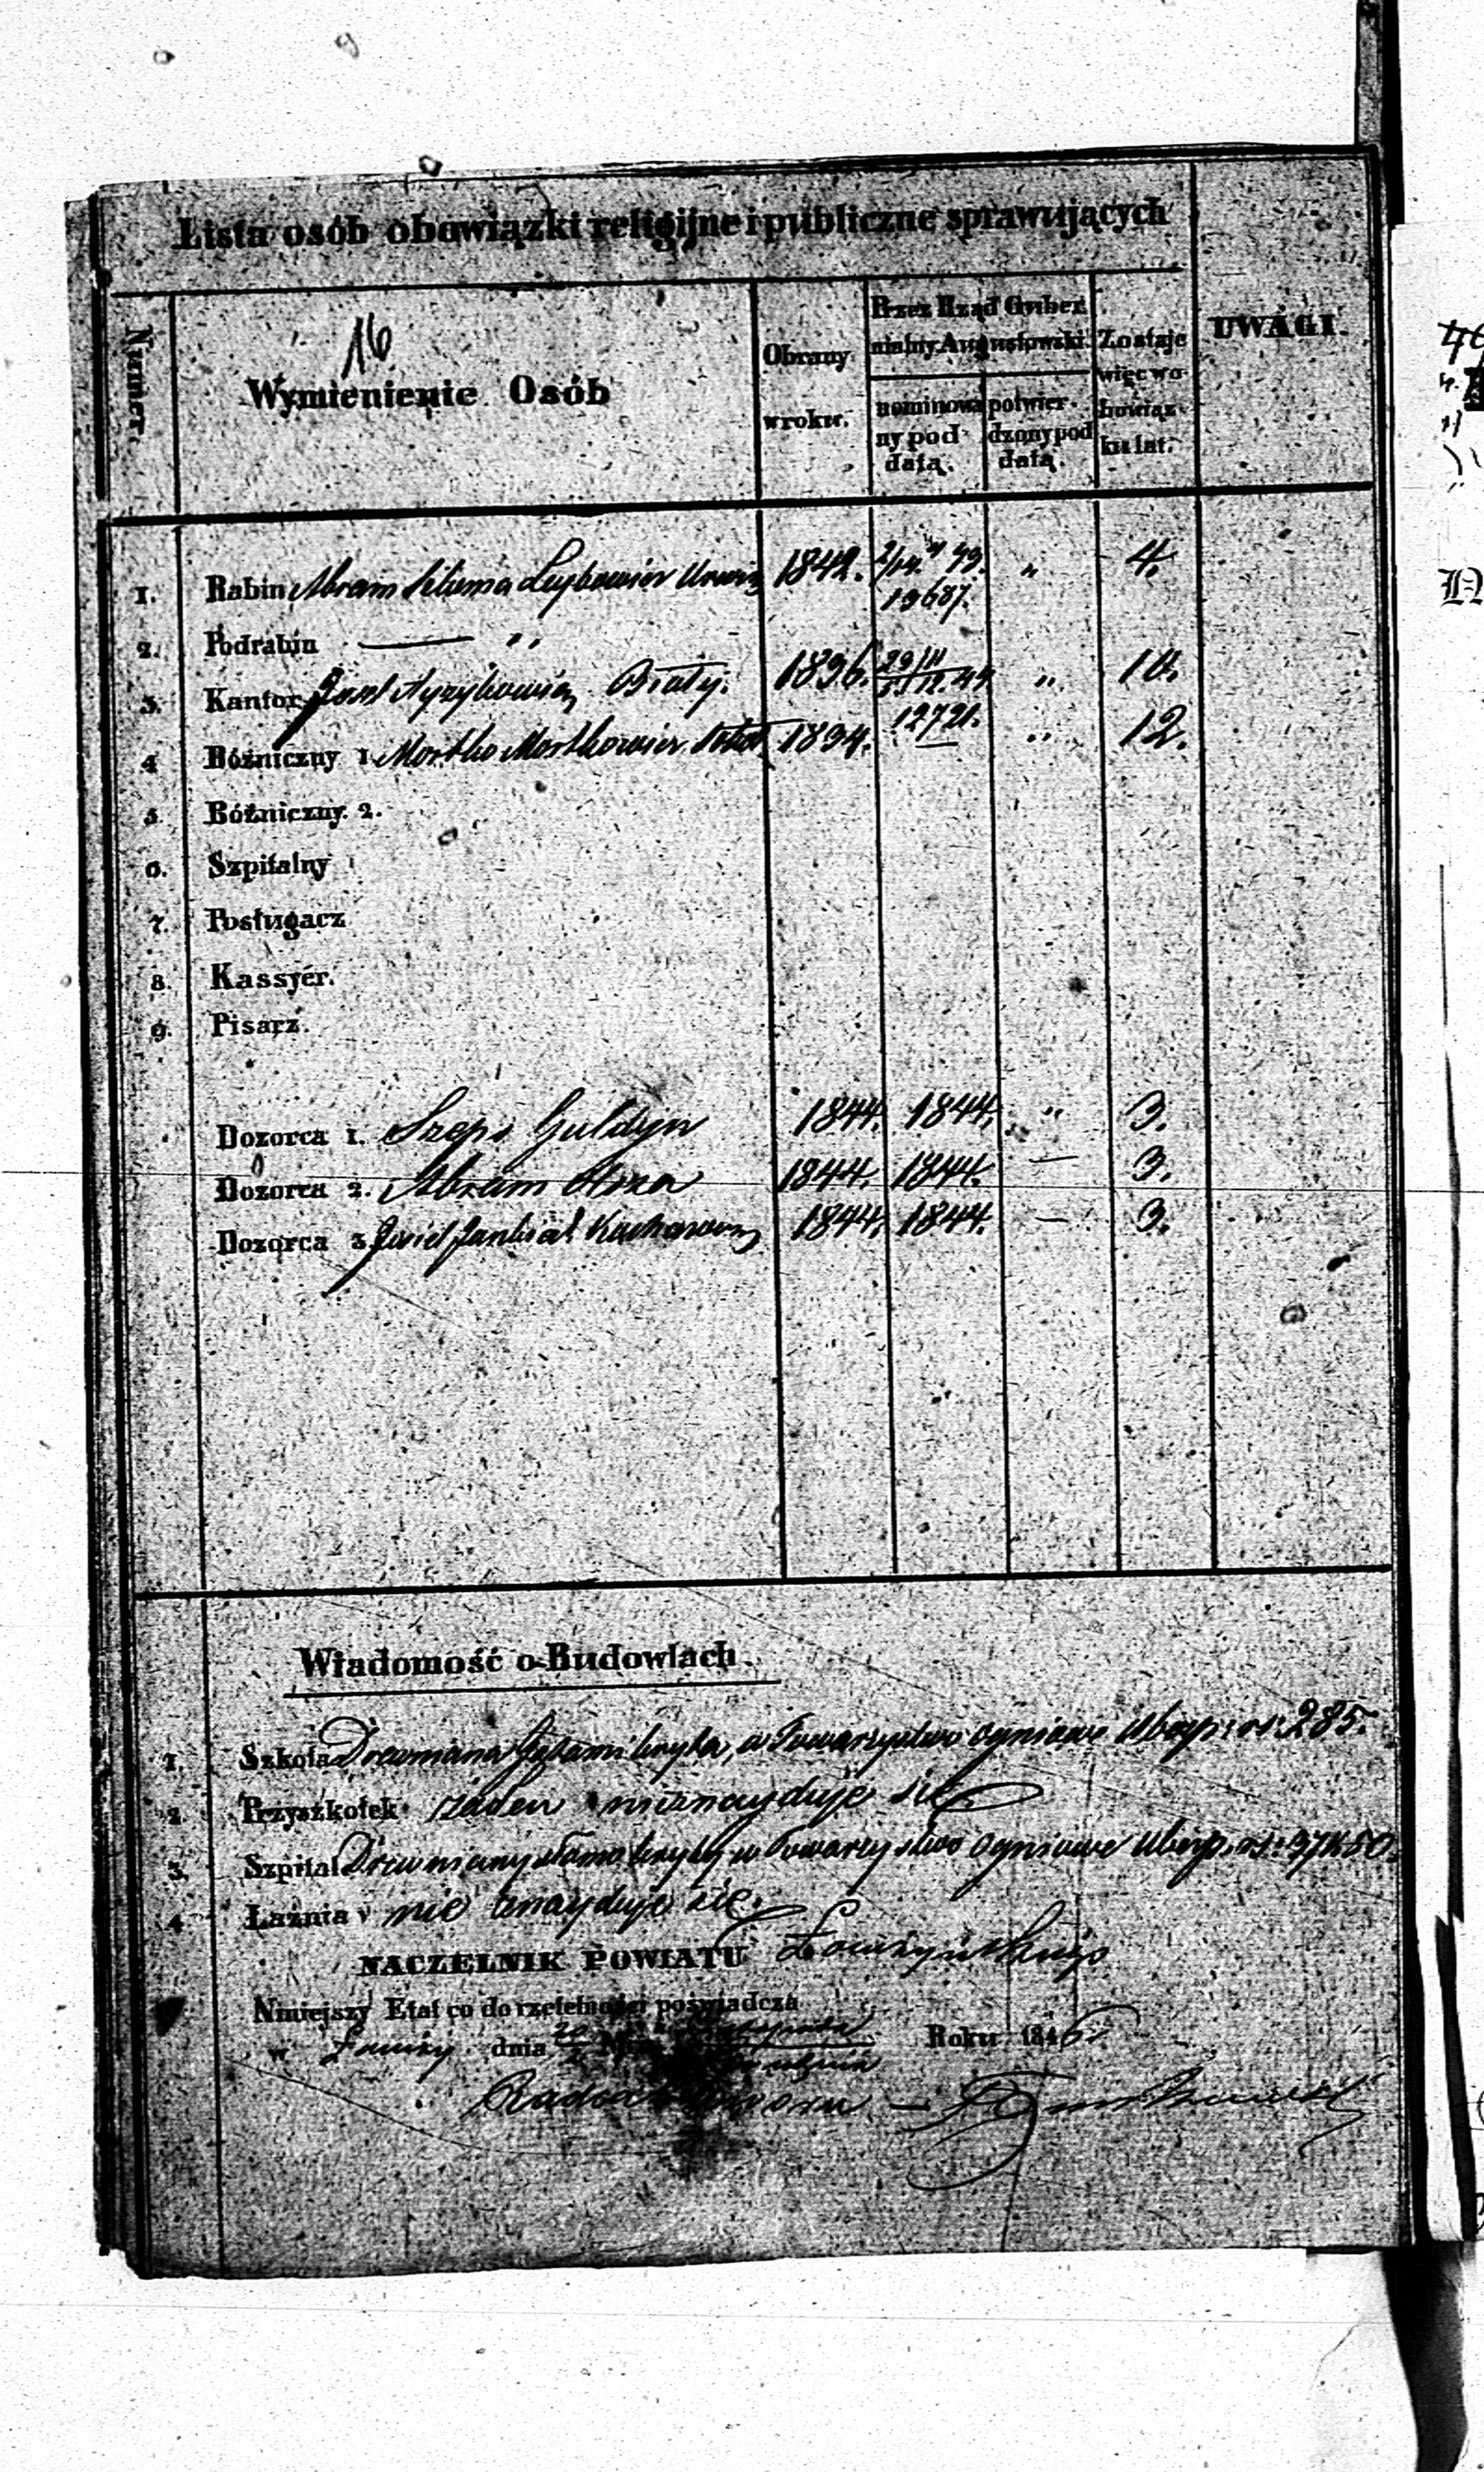 Lista osób obowiązki religijne i publiczne sprawujących
Numer.
16
Wymienienie Osób
Obrany
w roku.
Przez Rząd Guber
nialny Augustowski.
nominowa
ny pod
datą.
potwier-
dzony pod
datą.
Zostaje
więc w o-
bowiąz-
ku lat.
UWAGI.
1. Rabin Abram Leybowicz 1842. 19687. " 4.
2. Podrabin — "
3. Kantor Josel Biały. 1836. 29/11 12721. " 10.
4. Bóźniczny 1. Mortko Mortkowicz 1834. — " 12.
5. Bóźniczny 2.
6. Szpitalny
7. Posługacz
8. Kassyer.
9. Pisarz.
Dozorca 1. Szeps Guldyn 1844. 1844. " 3.
Dozorca 2. Abram 1844. 1844. — 3.
Dozorca 3. Jankiel 1844. 1844. — 3.
Wiadomość o Budowlach.
1. Szkoła Drewniana kryta, w Towarzystwo ogniowe Ubezp: rs: 285.
2. Przyszkołek żaden nieznayduje się
3. Szpital Drewniany słomą kryty w Towarzystwo Ogniowe Ubezp: rs: 37 k 50.
4. Łaźnia nie znayduje się.
NACZELNIK POWIATU Łomżyńskiego
Niniejszy Etat co do rzetelności poświadcza
w Łomży dnia Roku 1846.
Radca